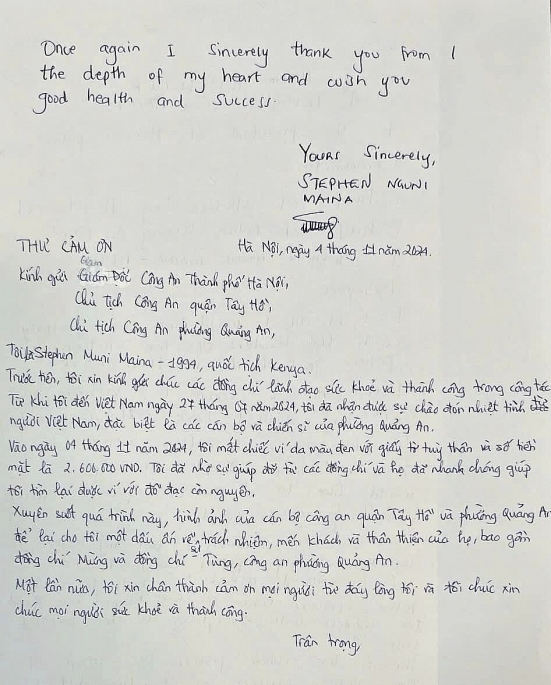 Once again I sincerely thank you from
the depth of my heart and wish you
good health and success.
Yours Sincerely,
STEPHEN NGUNI
MAINA
Hà Nội, ngày 4 tháng 11 năm 2024.
THƯ CẢM ƠN
Kính gửi Giám Đốc Công An Thành phố Hà Nội,
Chủ tịch Công An quận Tây Hồ,
Chỉ tịch Công An phường Quảng An,
Tôi là Stephen Muni Maina - 1994, quốc tịch Kenya.
Trước tiên, tôi xin kính gửi chúc các đồng chí lãnh đạo sức khoẻ và thành công trong công tác
Từ khi tôi đến Việt Nam ngày 27 tháng 07 năm 2024, tôi đã nhận được sự chào đón nhiệt tình
người Việt Nam, đặc biệt là các cán bộ và chiến sĩ của phường Quảng An.
Vào ngày 04 tháng 11 năm 2024, tôi mất chiếc ví da màu đen với giấy tờ tuỳ thân và số tiền
mặt là 2.606.000 VND. Tôi đã nhờ sự giúp đỡ từ các đồng chí và họ đã nhanh chóng giúp
tôi tìm lại được ví với đồ đạc còn nguyên.
Xuyên suốt quá trình này, hình ảnh của cán bộ công an quận Tây Hồ và phường Quảng An
để lại cho tôi một dấu ấn về sự trách nhiệm, mến khách và thân thiện của họ, bao gồm
đồng chí Mừng và đồng chí Tùng, công an phường Quảng An.
Một lần nữa, tôi xin chân thành cảm ơn mọi người từ đáy lòng tôi và tôi chúc xin
chúc mọi người sức khoẻ và thành công.
Trân trọng,